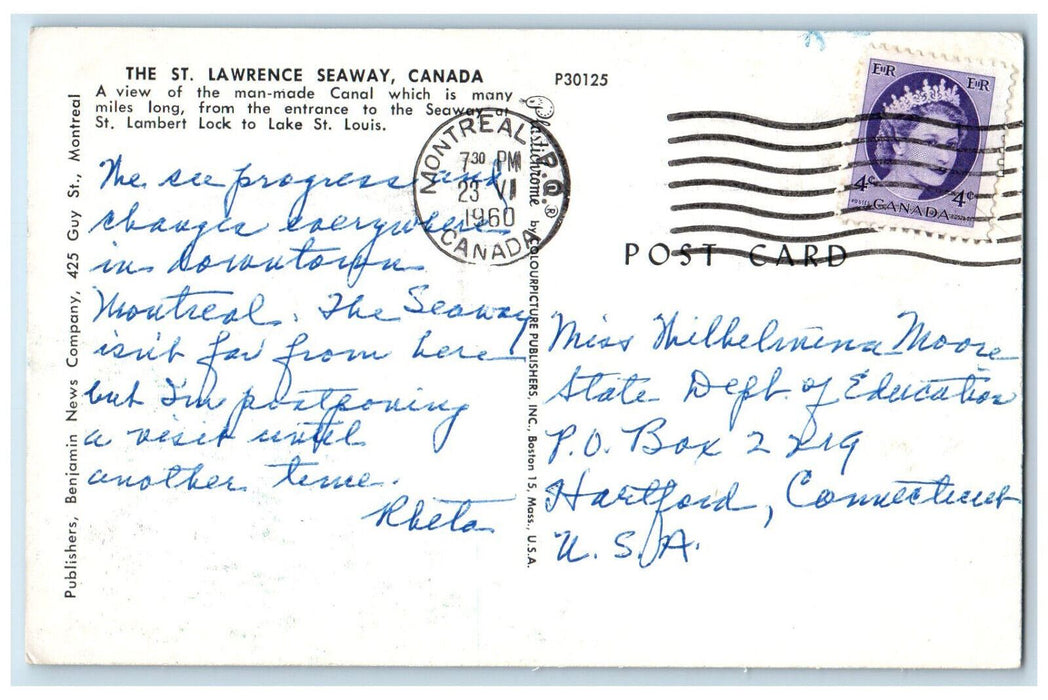 THE ST. LAWRENCE SEAWAY, CANADA
A view of the man-made Canal which is many
miles long, from the entrance to the Seaway at
St. Lambert Lock to Lake St. Louis.
P30125
Publishers, Benjamin News Company, 425 Guy St., Montreal
We see progress and
changes everywhere
in downtown
Montreal. The Seaway
isn't far from here
but I'm postponing
a visit until
another time.
Rheta
MONTREAL, P.Q.
7 30 PM
23 VI
1960
CANADA
Plastichrome ® by COLOURPICTURE PUBLISHERS, INC., Boston 15, Mass., U.S.A.
EIIR EIIR
4¢ 4¢
CANADA
POST CARD
Miss Wilhelmina Moore
State Dept. of Education
P.O. Box 2219
Hartford, Connecticut
U.S.A.